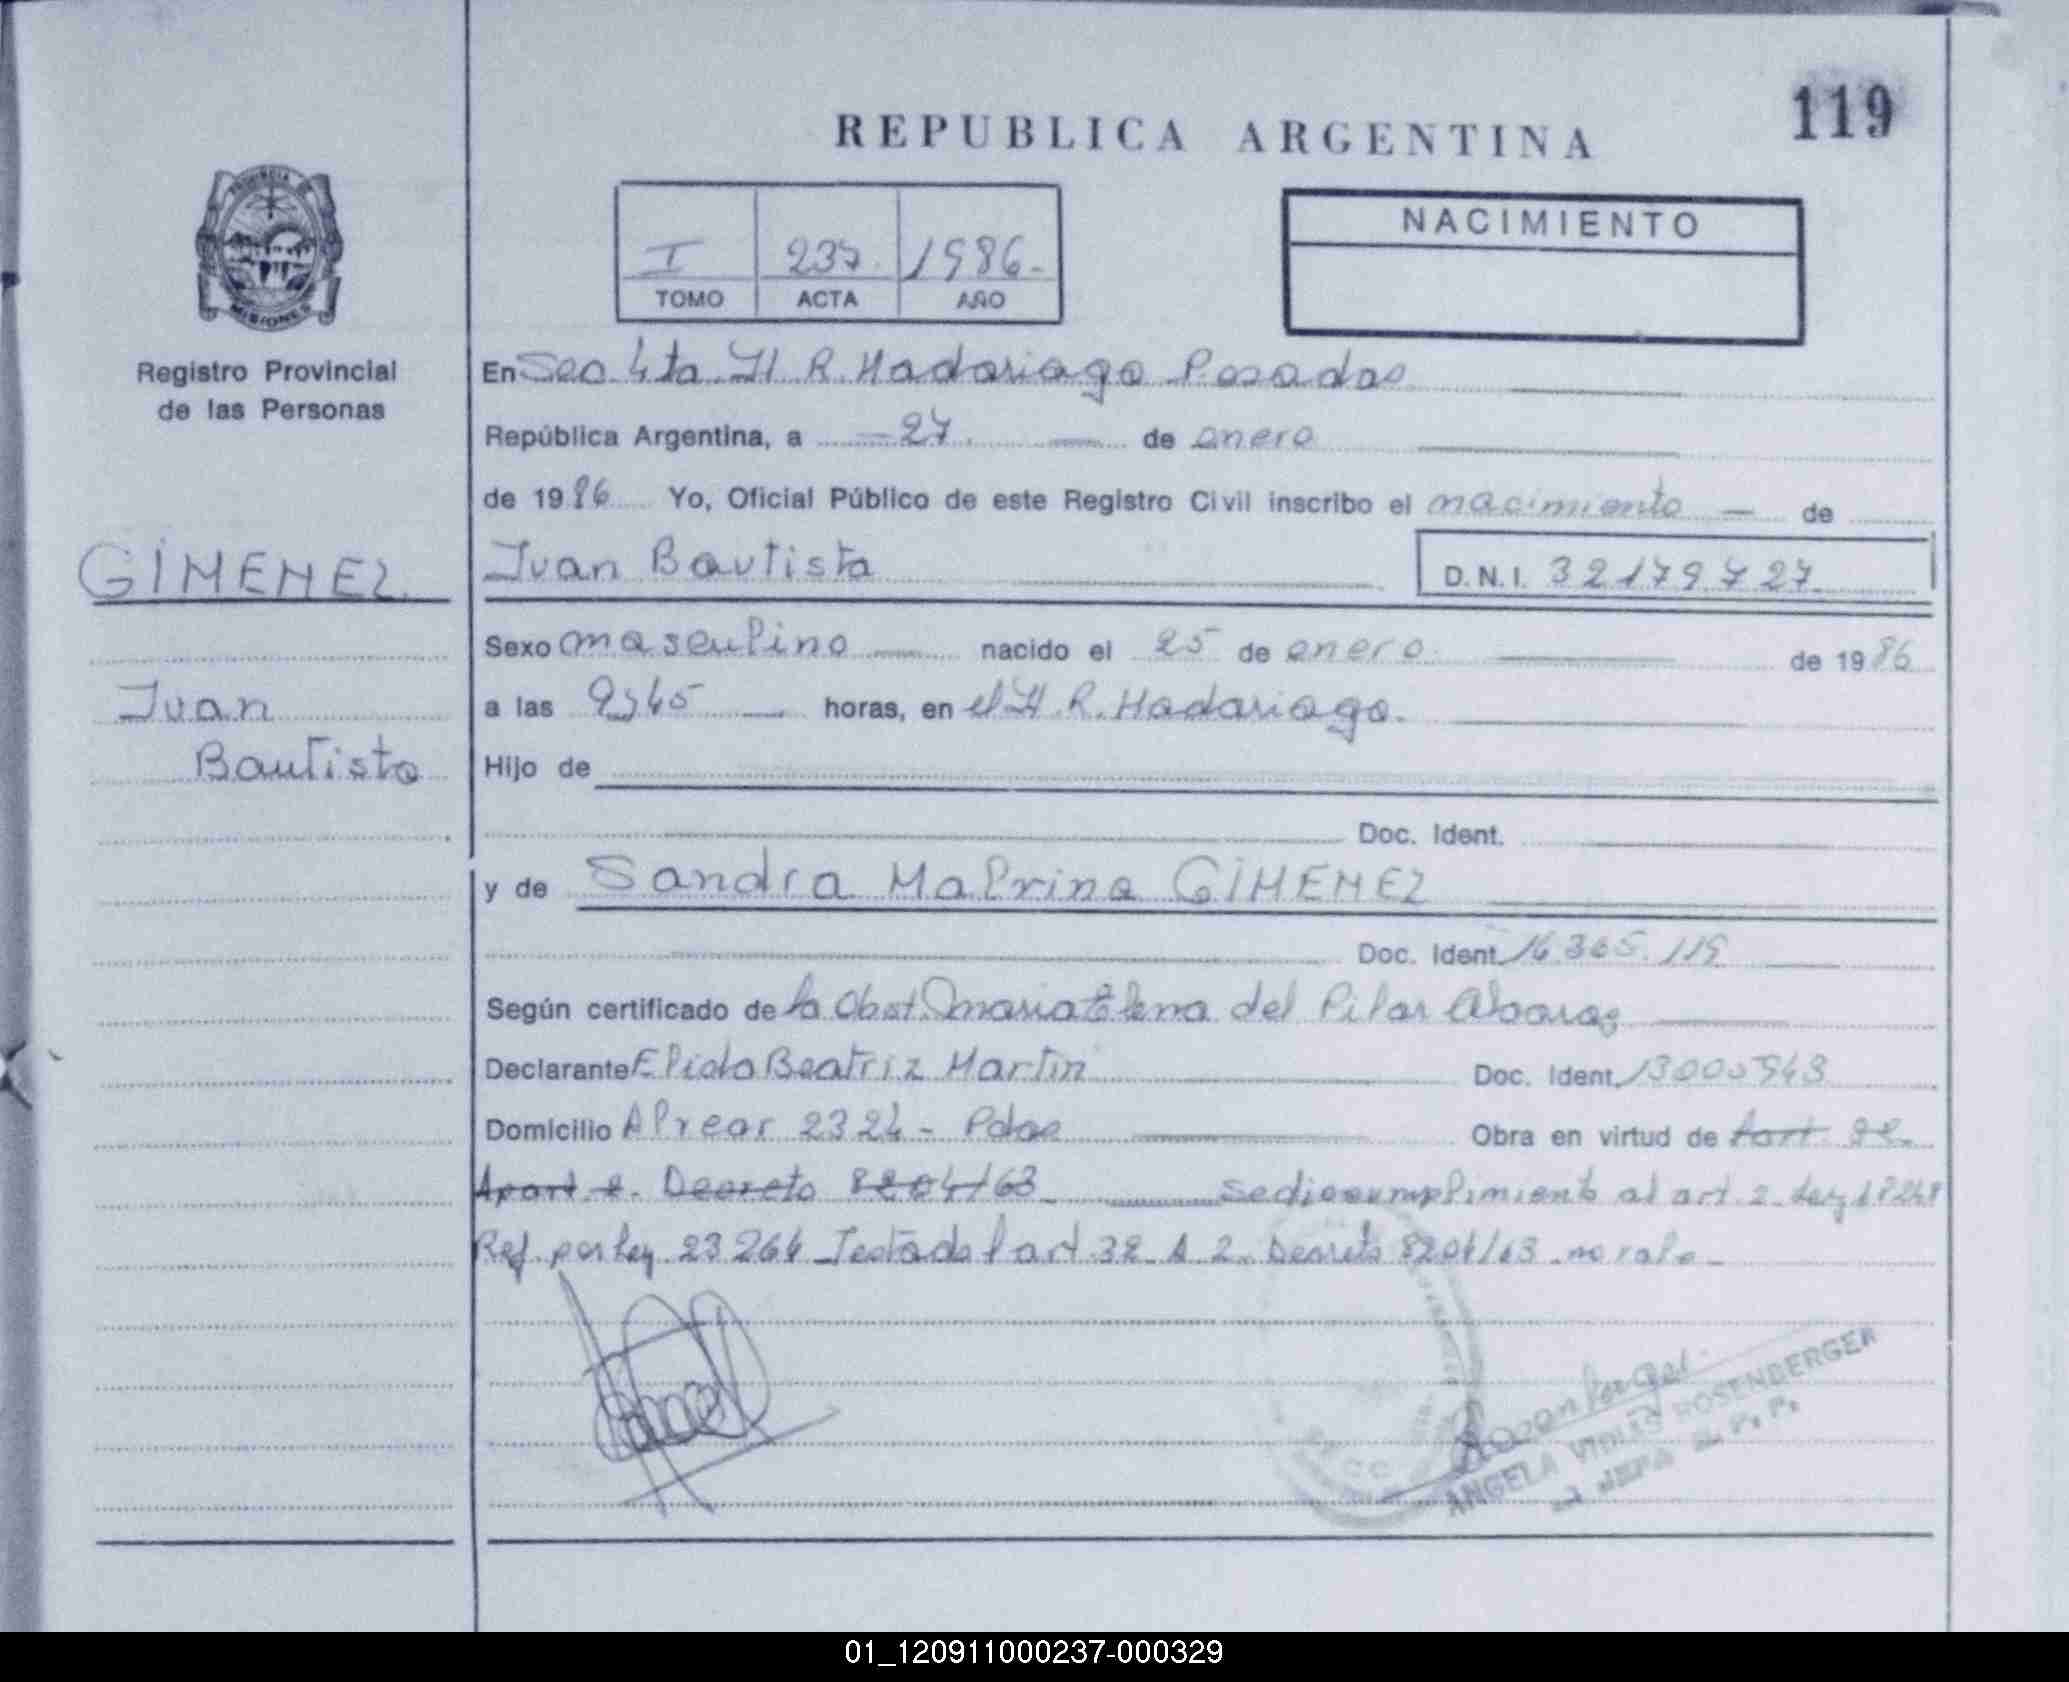 119
REPUBLICA ARGENTINA
PROVINCIA DE
MISIONES
Registro Provincial
de las Personas
I 237 1986.-
TOMO ACTA AÑO
NACIMIENTO
En Sec. 4ta H. R. Madariaga Posadas
República Argentina, a 27 de enero
de 1986 Yo, Oficial Público de este Registro Civil inscribo el nacimiento de
GIMENEZ
Juan Bautista D.N.I. 32179727
Sexo masculino nacido el 25 de enero de 1986
Juan
Bautista
a las 9,45 horas, en el H. R. Madariaga.
Hijo de
Doc. Ident.
y de Sandra Malvina GIMENEZ
Doc. Ident. 16.365.119
Según certificado de la Obst. Maria Elena del Pilar
Declarante Elida Beatriz Martin Doc. Ident. 13005943
Domicilio Alvear 2324 - Pdas Obra en virtud de
Apart 2. Decreto 8204/63 se dio cumplimiento al art. 2 Ley 18248
Ref. por ley 23264 Testado art. 32 A 2. Decreto 8204/63 no vale
ANGELA ROSENBERGER
JEFA R. P. P.
01_120911000237-000329